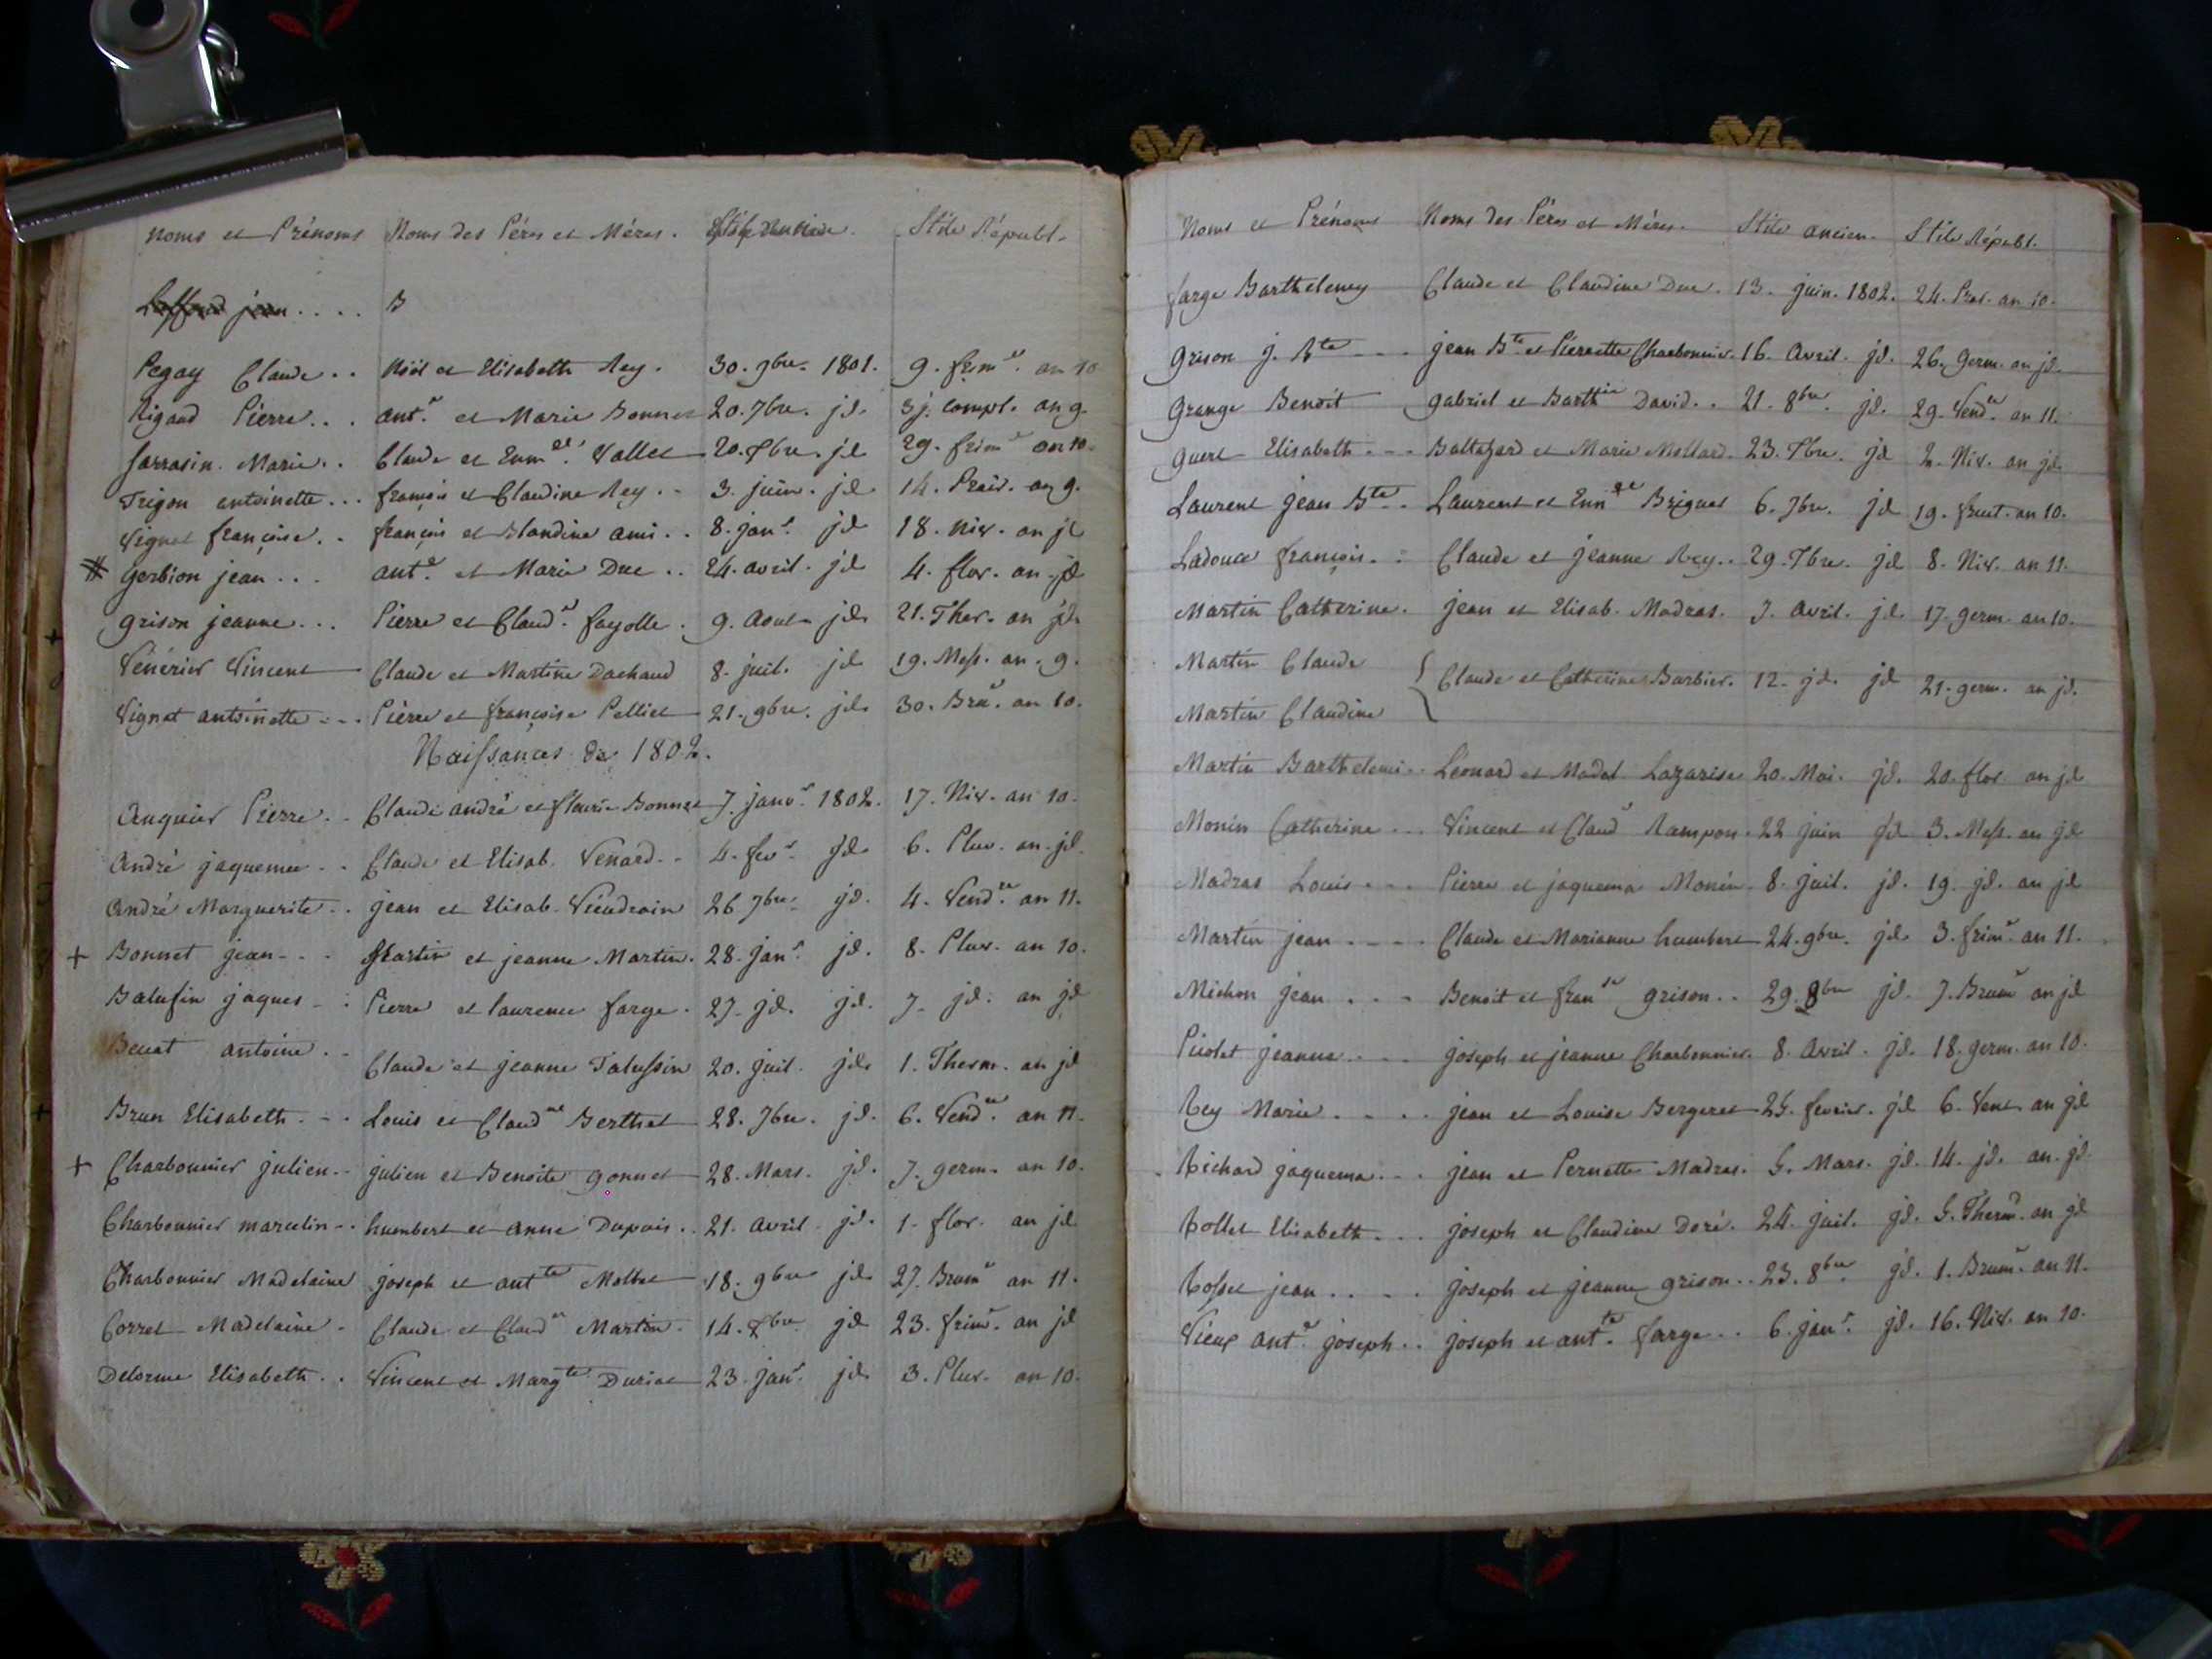 Noms et Prénoms Noms des Péres et Méres. Stile Républ.
jean . . . . B
Pegay Claude . . Noël et Elisabeth Rey. 30. 9bre. 1801. 9. frimre. an 10
Rigaud Pierre . . . antne et Marie Bonnet 20. 7bre. jd. 3 j. compl. an 9.
Sarrasin. Marie . . Claude et Enmde. Vallet 20. Xbre. jd 29. frimre an 10.
Trigon antoinette . . . françois et Claudine Rey . . 3. juin. jd 14. Prair. an 9.
Vignet françoise . . françois et Blandine ami . . 8. janr jd 18. Niv. an jd
gerbion jean . . . antne. et Marie Duc . . 24. avril. jd 4. flor. an jd
grison jeanne . . . Pierre et Claude. fayolle . 9. Aout jd. 21. Ther. an jd.
Vénérier Vincent Claude et Martine Dachaud 8. juil. jd 19. Mess. an. 9.
Vignet antoinette . . . Pierre et françoise Pelliet 21. 9bre. jd. 30. Brure. an 10.
Naissances de 1802.
Auguier Pierre . . Claude andré et fleurie Bonnet 7. janvr. 1802. 17. Niv. an 10.
André jaquemee . . Claude et Elisab. Venard . . 4. fevr. jd. 6. Pluv. an jd.
André Marguerite . . jean et Elisab. Vieudrain 26 7bre. jd. 4. Vendre. an 11.
+ Bonnet jean . . . Martin et jeanne Martin. 28. janr. jd. 8. Pluv. an 10.
Balufin jaques . . Pierre et laurence farge . 27. jd. jd. 7. jd. an jd
antoine . . Claude et jeanne Talussin 20. juil. jd. 1. Therm. an jd
Brun Elisabeth . . . Louis et Claudne Berthet 28. 7bre. jd. 6. Vendre. an 11.
+ Charbonnier julien . . julien et Benoite gonnet 28. Mars. jd. 7. germ. an 10.
Charbonnier marcelin . . humbert et anne Dupuis . . 21. avril. jd. 1. flor. an jd
Charbonnier Madelaine joseph et antte Mollet 18. 9bre jd. 27. Brumre an 11.
Corret Madelaine . Claude et Claudne Martin. 14. Xbre jd 23. frimre. an jd
Delorme Elisabeth . . Vincent et Margte Duriat 23. janr. jd. 3. Pluv. an 10.
Noms et Prénoms Noms des Péres et Méres. Stile ancien. Stile Républ.
farge Barthelemy Claude et Claudine Duc . 13. juin. 1802. 24. Prai. an 10.
grison j. Bte . . . jean Bte et Pierrette Charbonnier. 16. Avril. jd. 26. germ. an jd.
grange Benoît gabriel et Barthie David . . 21. 8bre. jd. 29. Vendre. an 11.
guert Elisabeth . . . Baltazard et Marie Mollard. 23. Xbre. jd 2. Niv. an jd.
Laurent jean Bte . . Laurent et Ennde Briguet 6. 7bre. jd 19. fruct. an 10.
Ladouce françois . . Claude et jeanne Rey . . 29. Xbre. jd 8. Niv. an 11.
Martin Catherine. jean et Elisab. Madras. 7. avril. jd. 17. germ. an 10.
Martin Claude
Claude et Catherine Barbier. 12. jd. jd 21. germ. an jd.
Martin Claudine
Martin Barthelemi . . Léonard et Madel. Lazarise 20. Mai. jd. 20. flor. an jd
Monin Catherine . . . Vincent et Claude Rampon. 22 juin jd 3. Mess. an jd
Madras Louis . . . Pierre et jaquema Monin. 8. juil. jd. 19. jd. an jd
Martin jean . . . . Claude et Marianne humbert 24. 9bre. jd. 3. frimre. an 11.
Michon jean . . . Benoit et franse grison . . 29. 8bre jd. 7. Brumre an jd
Piolet jeanne . . . . joseph et jeanne Charbonnier. 8. Avril. jd. 18. germ. an 10.
Rey Marie . . . . jean et Louise Bergeret 25. fevrier. jd 6. Vent. an jd
Richard jaquema . . . jean et Pernette Madras. 5. Mars. jd. 14. jd. an jd.
Rollet Elisabeth . . . joseph et Claudine Doré. 24. juil. jd. 5. Therm. an jd
Rosset jean . . . . joseph et jeanne grison . . 23. 8bre. jd. 1. Brumre. an 11.
Vieux antne. joseph . . joseph et antte. farge . . 6. janr. jd. 16. Niv. an 10.